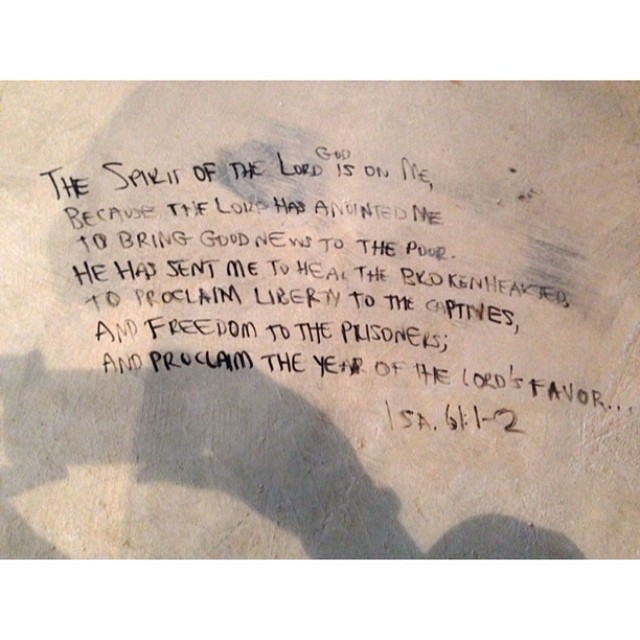 THE SPIRIT OF THE LORD GOD IS ON ME,
BECAUSE THE LORD HAS ANOINTED ME
TO BRING GOOD NEWS TO THE POOR.
HE HAS SENT ME TO HEAL THE BROKENHEARTED,
TO PROCLAIM LIBERTY TO THE CAPTIVES,
AND FREEDOM TO THE PRISONERS;
AND PROCLAIM THE YEAR OF THE LORD'S FAVOR...
ISA. 61:1-2